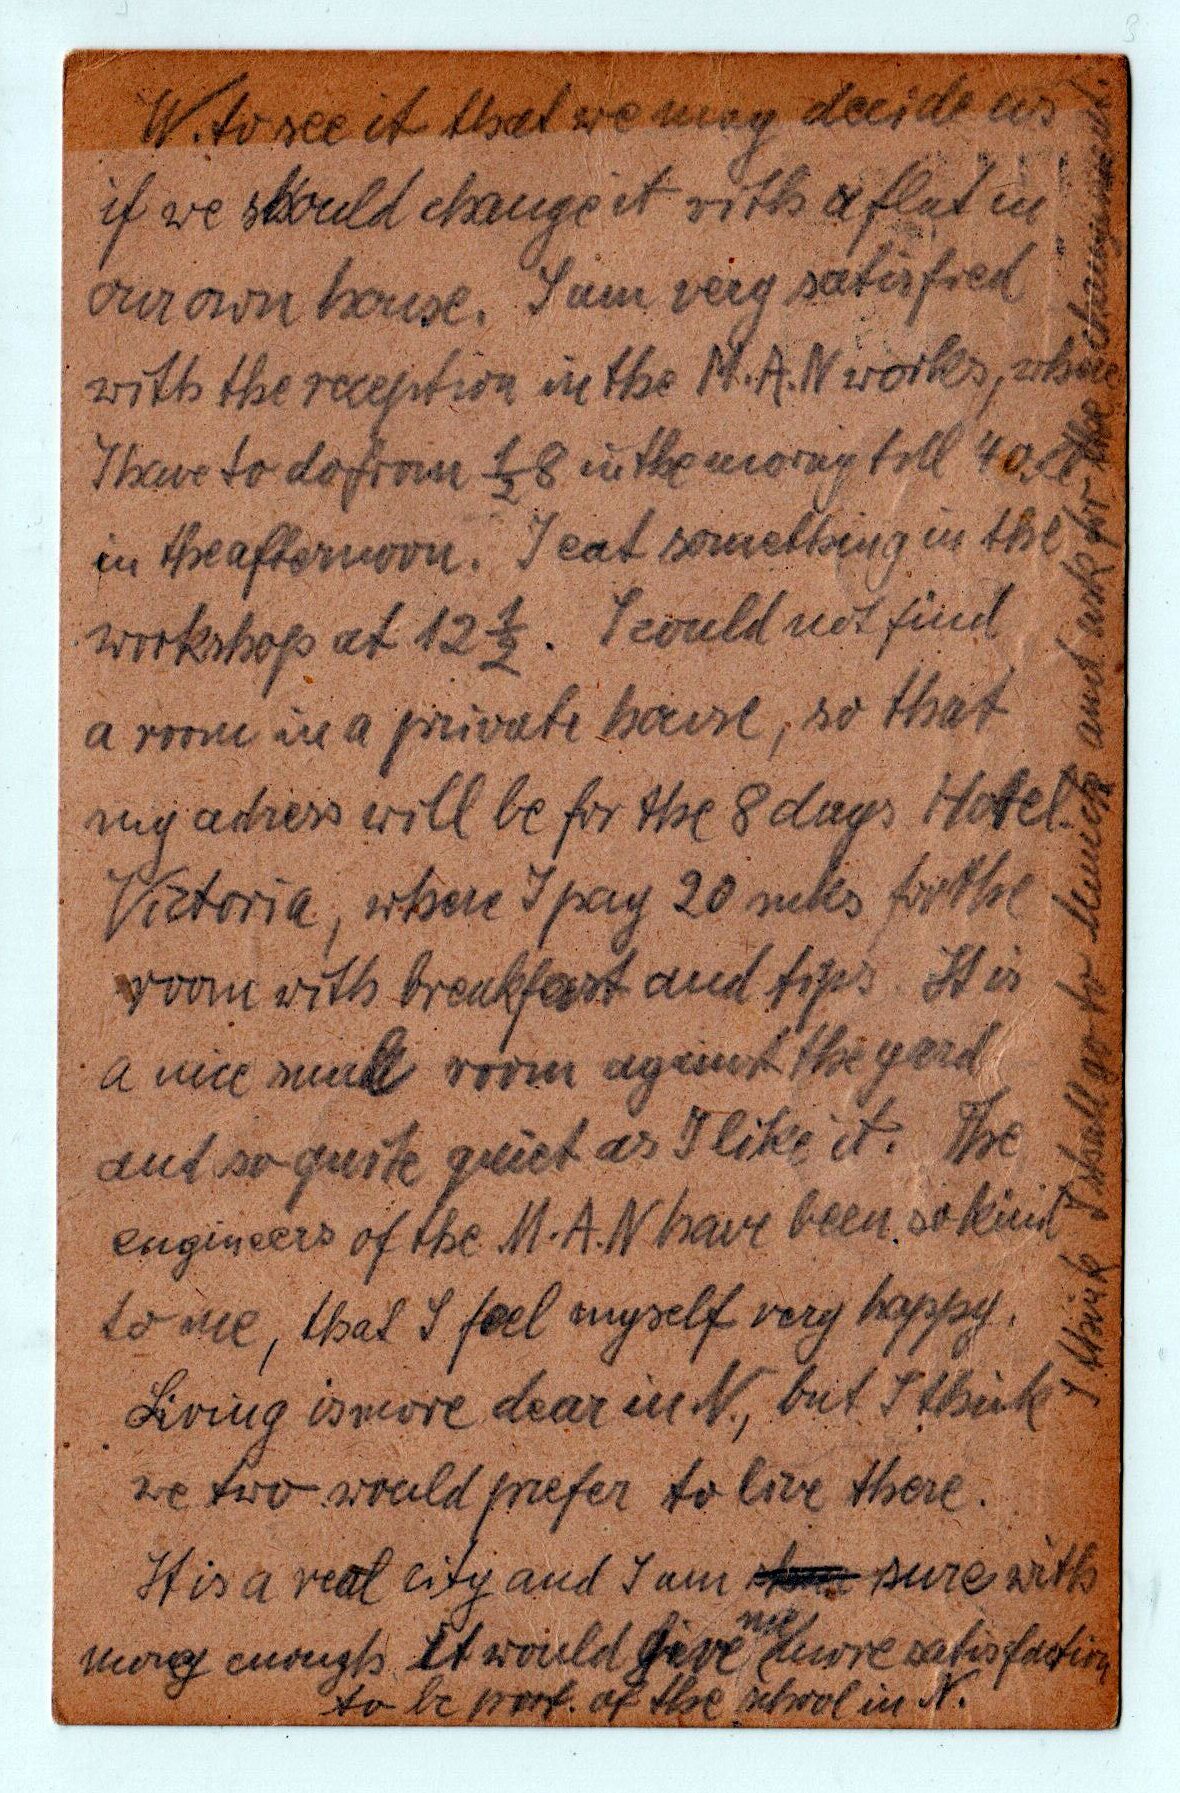 W. to see it that we may decide us
if we should change it with a flat in
our own house. I am very satisfied
with the reception in the M.A.N works, where
I have to do from ½8 in the morng till 4
in the afternoon. I eat something in the
workshop at 12½. I could not find
a room in a private house, so that
my adress will be for the 8 days Hotel
Victoria, where I pay 20 mks for the
room with breakfast and tips. It is
a nice small room against the yard
and so quite quiet as I like it. The
engineers of the M.A.N have been so kind
to me, that I feel myself very happy.
Living is more dear in N., but I think
we two would prefer to live there.
It is a real city and I am sure with
money enough it would give me more satisfaction
to be prof. of the school in N.
I think I shall go to Munich and ask for the